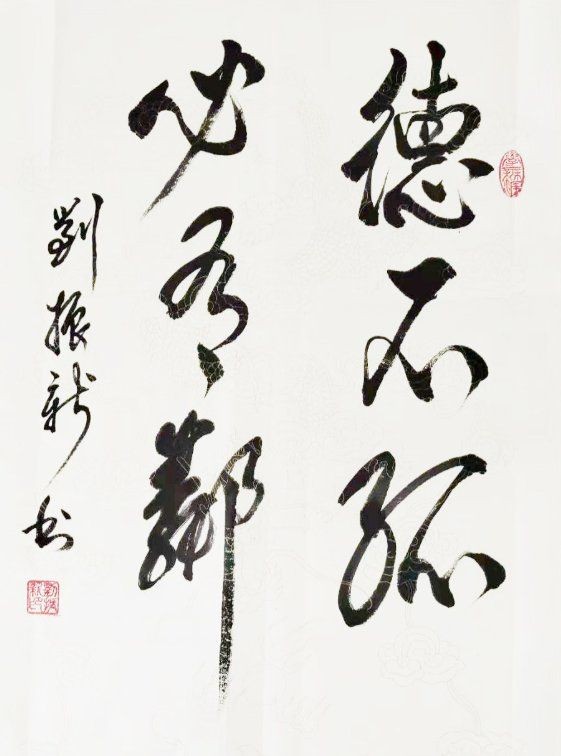 德不孤
必有鄰
劉振新书